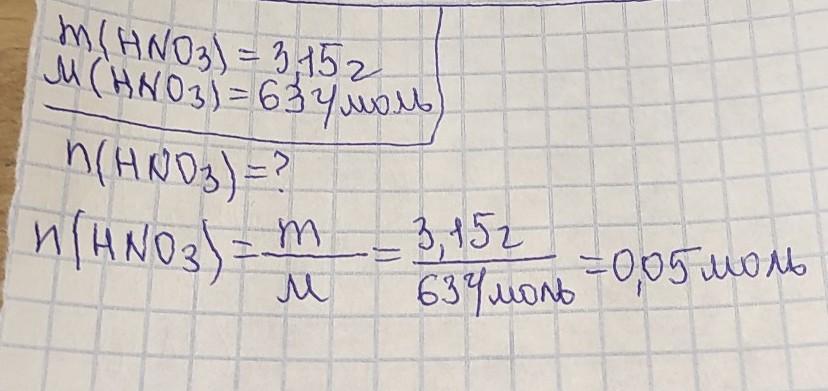 m(HNO3) = 3,15г
M(HNO3) = 63г/моль
n(HNO3) = ?
n(HNO3) = m/M = 3,15г/63г/моль = 0,05 моль